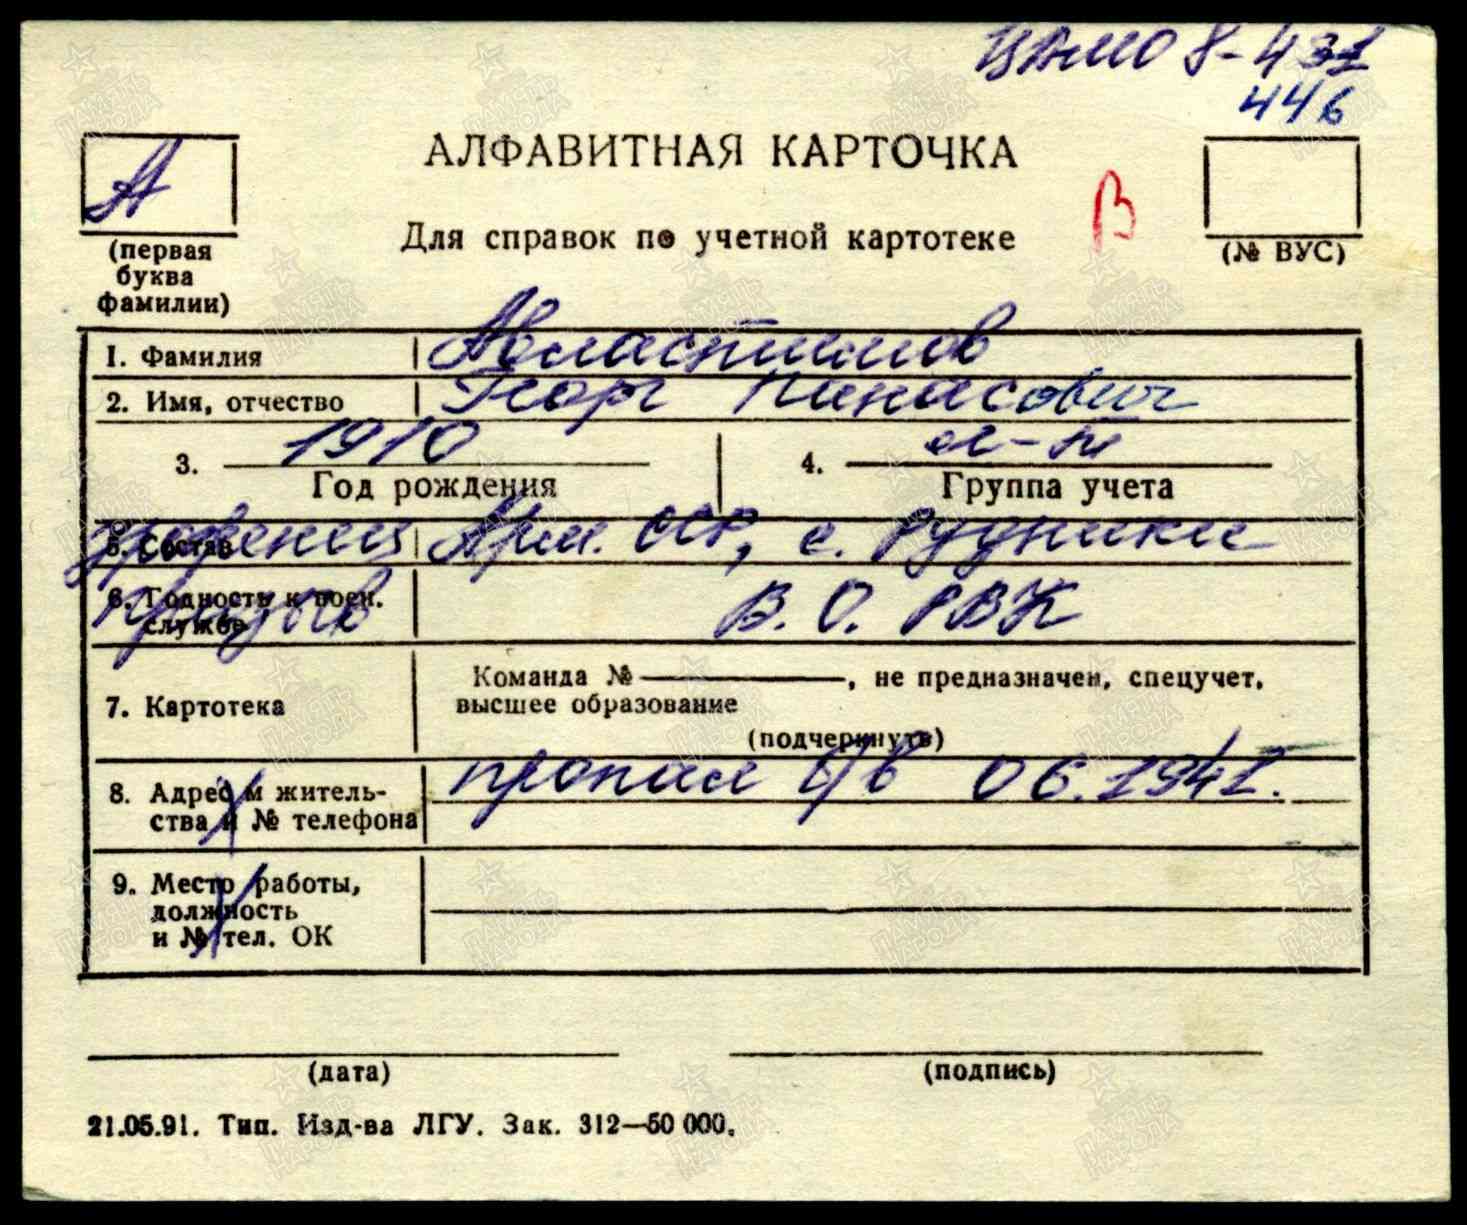 ЦАМО 8-431
446
А
АЛФАВИТНАЯ КАРТОЧКА
В
(первая
буква
фамилии)
Для справок по учетной картотеке
(№ ВУС)
1. Фамилия
Авластимов
2. Имя, отчество
Георг Панасович
3. 1910
Год рождения
4.
Группа учета
5. Состав
Арм. ССР, с. Рудники
6. Годность к воен.
службе
призыв
В. О. РВК
7. Картотека
Команда № , не предназначен, спецучет,
высшее образование
(подчеркнуть)
8. Адрес м житель-
ства и № телефона
пропал б/в 06.1941.
9. Место работы,
должность
и № тел. ОК
(дата)
(подпись)
21.05.91. Тип. Изд-ва ЛГУ. Зак. 312—50 000.
ПАМЯТЬ НАРОДА